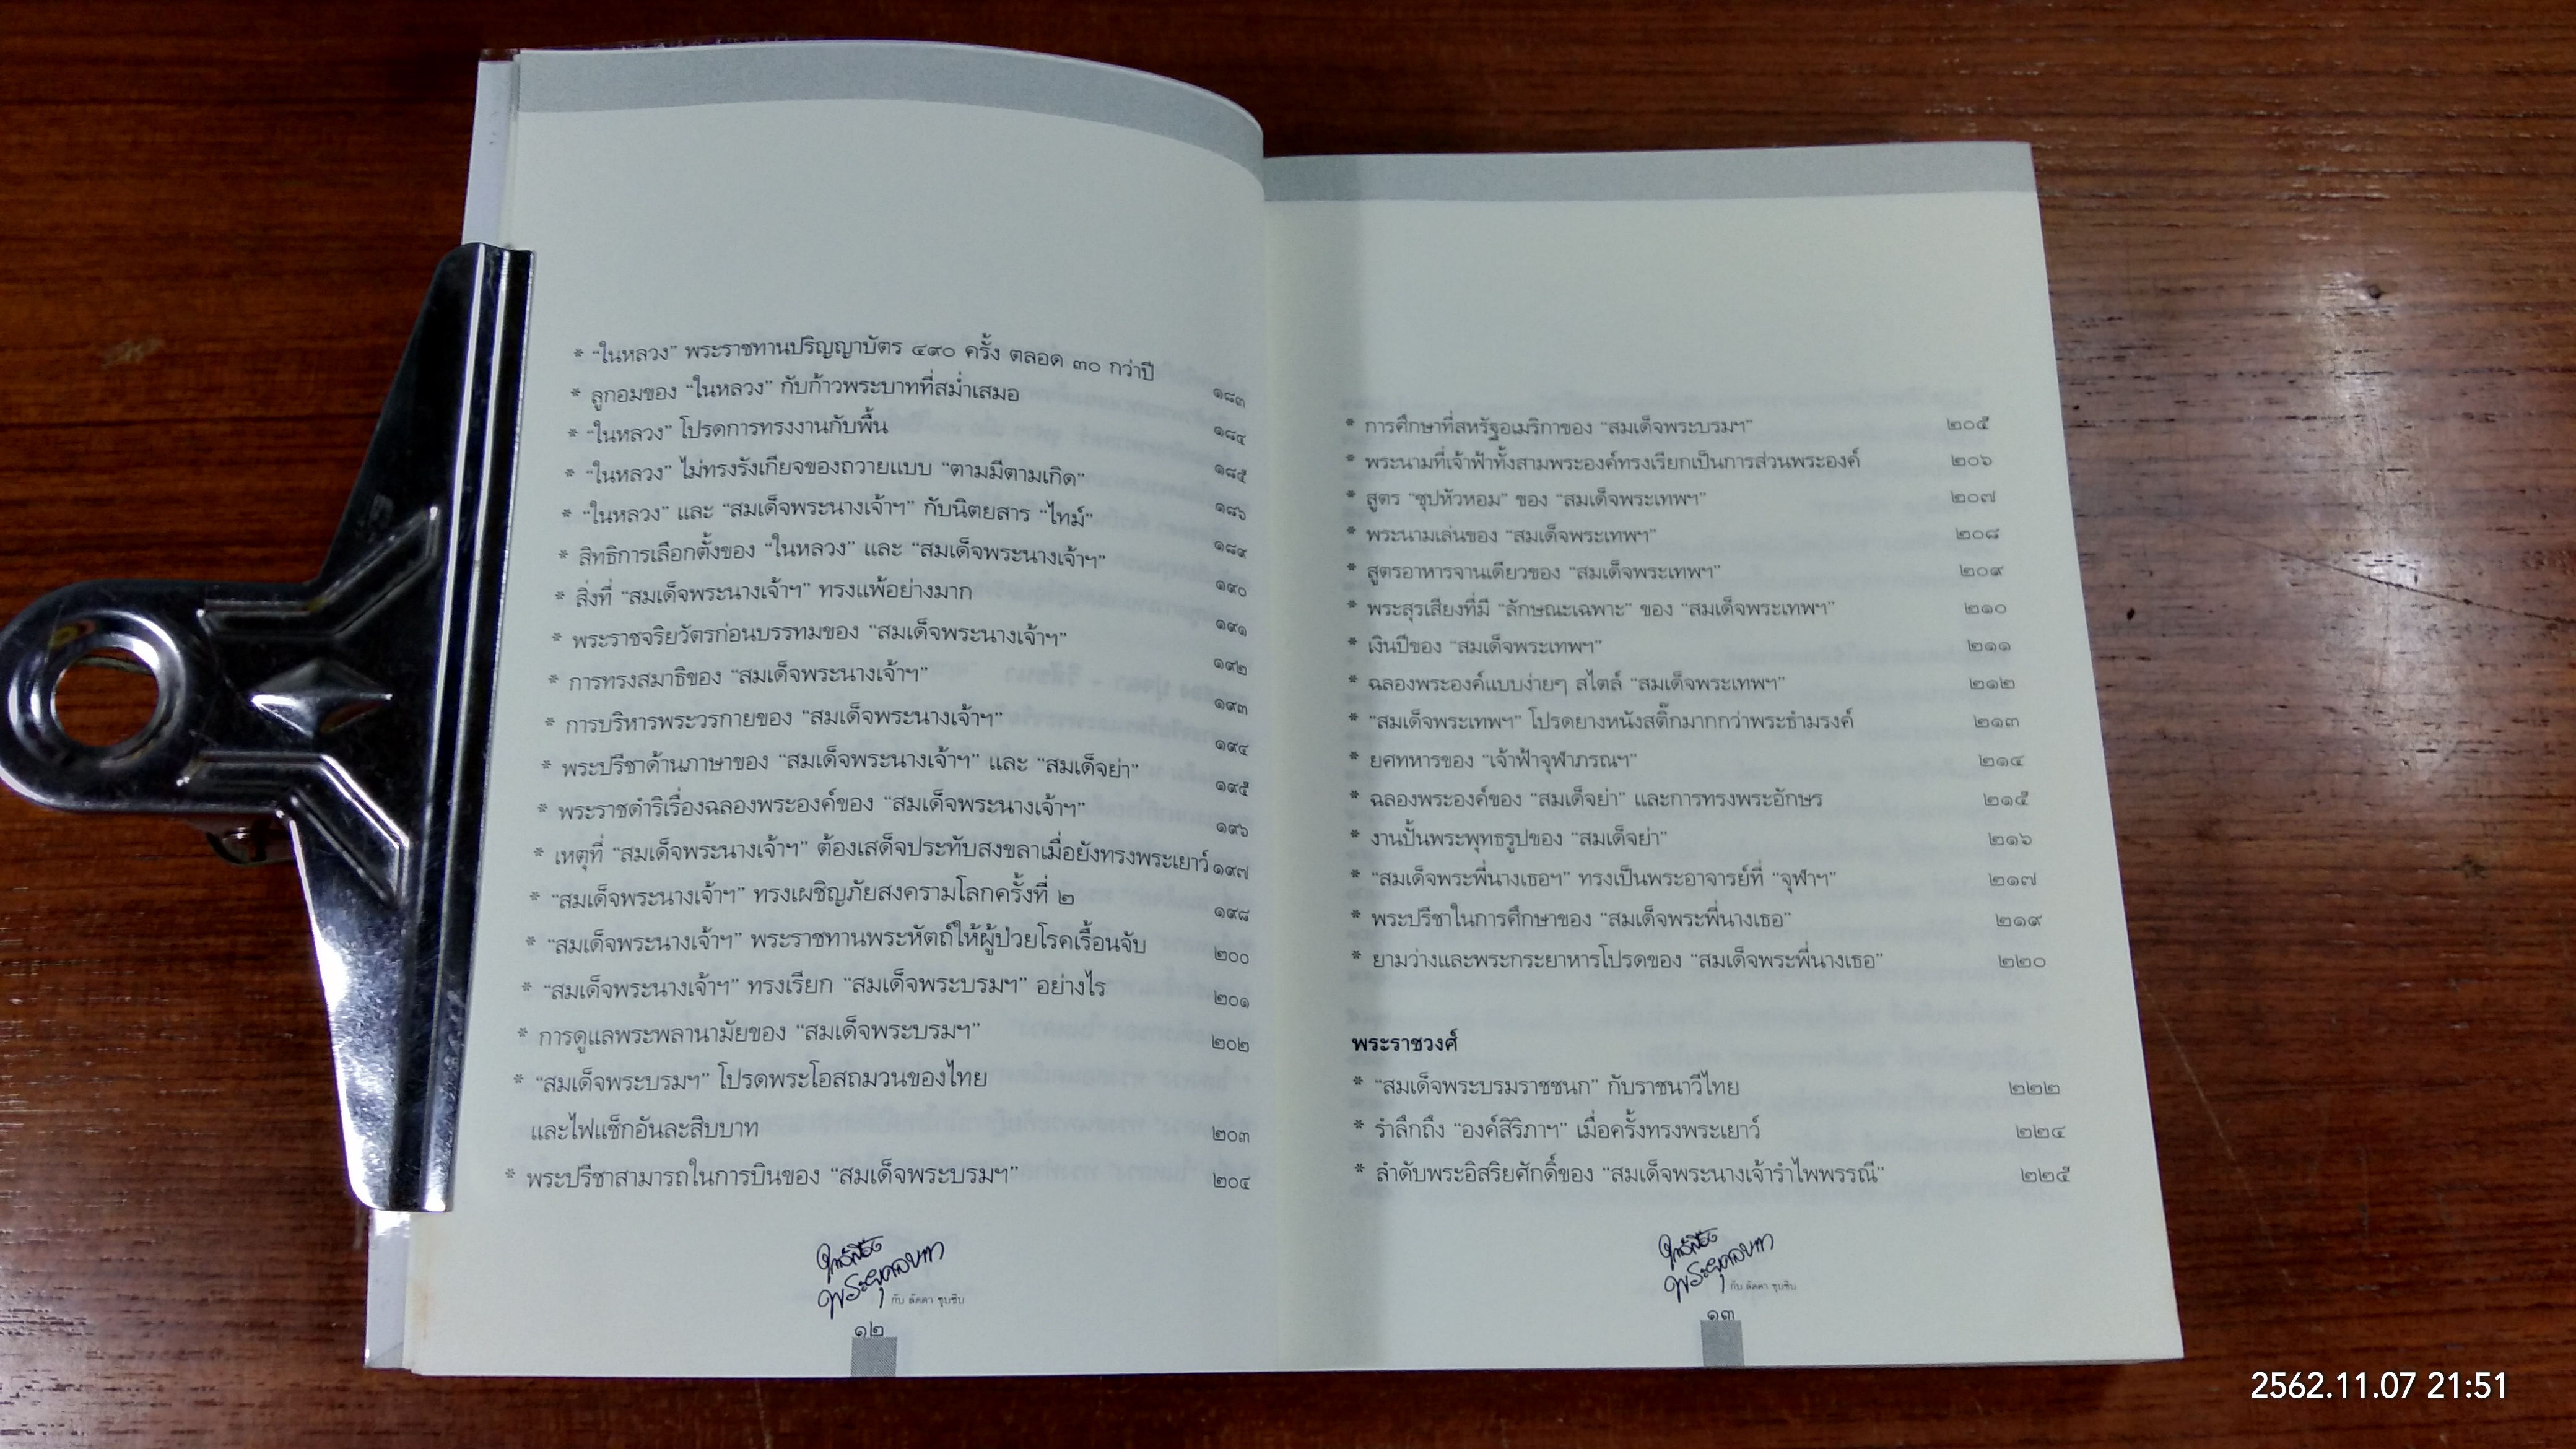 * “ในหลวง” พระราชทานปริญญาบัตร ๔๙๐ ครั้ง ตลอด ๓๐ กว่าปี ๑๘๓
* ลูกอมของ “ในหลวง” กับก้าวพระบาทที่สม่ำเสมอ ๑๘๔
* “ในหลวง” โปรดการทรงงานกับพื้น ๑๘๕
* “ในหลวง” ไม่ทรงรังเกียจของถวายแบบ “ตามมีตามเกิด” ๑๘๖
* “ในหลวง” และ “สมเด็จพระนางเจ้าฯ” กับนิตยสาร “ไทม์” ๑๘๙
* สิทธิการเลือกตั้งของ “ในหลวง” และ “สมเด็จพระนางเจ้าฯ” ๑๙๐
* สิ่งที่ “สมเด็จพระนางเจ้าฯ” ทรงแพ้อย่างมาก ๑๙๑
* พระราชจริยวัตรก่อนบรรทมของ “สมเด็จพระนางเจ้าฯ” ๑๙๒
* การทรงสมาธิของ “สมเด็จพระนางเจ้าฯ” ๑๙๓
* การบริหารพระวรกายของ “สมเด็จพระนางเจ้าฯ” ๑๙๔
* พระปรีชาด้านภาษาของ “สมเด็จพระนางเจ้าฯ” และ “สมเด็จย่า” ๑๙๕
* พระราชดำริเรื่องฉลองพระองค์ของ “สมเด็จพระนางเจ้าฯ” ๑๙๖
* เหตุที่ “สมเด็จพระนางเจ้าฯ” ต้องเสด็จประทับสงขลาเมื่อยังทรงพระเยาว์ ๑๙๗
* “สมเด็จพระนางเจ้าฯ” ทรงเผชิญภัยสงครามโลกครั้งที่ ๒ ๑๙๘
* “สมเด็จพระนางเจ้าฯ” พระราชทานพระหัตถ์ให้ผู้ป่วยโรคเรื้อนจับ ๒๐๐
* “สมเด็จพระนางเจ้าฯ” ทรงเรียก “สมเด็จพระบรมฯ” อย่างไร ๒๐๑
* การดูแลพระพลานามัยของ “สมเด็จพระบรมฯ” ๒๐๒
* “สมเด็จพระบรมฯ” โปรดพระโอสถมวนของไทย
และไฟแช็กอันละสิบบาท ๒๐๓
* พระปรีชาสามารถในการบินของ “สมเด็จพระบรมฯ” ๒๐๔
ใต้เบื้อง
พระยุคลบาท
กับ ลัดดา ซุบซิบ
๑๒
* การศึกษาที่สหรัฐอเมริกาของ “สมเด็จพระบรมฯ” ๒๐๕
* พระนามที่เจ้าฟ้าทั้งสามพระองค์ทรงเรียกเป็นการส่วนพระองค์ ๒๐๖
* สูตร “ซุปหัวหอม” ของ “สมเด็จพระเทพฯ” ๒๐๗
* พระนามเล่นของ “สมเด็จพระเทพฯ” ๒๐๘
* สูตรอาหารจานเดียวของ “สมเด็จพระเทพฯ” ๒๐๙
* พระสุรเสียงที่มี “ลักษณะเฉพาะ” ของ “สมเด็จพระเทพฯ” ๒๑๐
* เงินปีของ “สมเด็จพระเทพฯ” ๒๑๑
* ฉลองพระองค์แบบง่ายๆ สไตล์ “สมเด็จพระเทพฯ” ๒๑๒
* “สมเด็จพระเทพฯ” โปรดยางหนังสติ๊กมากกว่าพระธำมรงค์ ๒๑๓
* ยศทหารของ “เจ้าฟ้าจุฬาภรณฯ” ๒๑๔
* ฉลองพระองค์ของ “สมเด็จย่า” และการทรงพระอักษร ๒๑๕
* งานปั้นพระพุทธรูปของ “สมเด็จย่า” ๒๑๖
* “สมเด็จพระพี่นางเธอฯ” ทรงเป็นพระอาจารย์ที่ “จุฬาฯ” ๒๑๗
* พระปรีชาในการศึกษาของ “สมเด็จพระพี่นางเธอ” ๒๑๙
* ยามว่างและพระกระยาหารโปรดของ “สมเด็จพระพี่นางเธอ” ๒๒๐
พระราชวงศ์
* “สมเด็จพระบรมราชชนก” กับราชนาวีไทย ๒๒๒
* รำลึกถึง “องค์สิริภาฯ” เมื่อครั้งทรงพระเยาว์ ๒๒๔
* ลำดับพระอิสริยศักดิ์ของ “สมเด็จพระนางเจ้ารำไพพรรณี” ๒๒๕
ใต้เบื้อง
พระยุคลบาท
กับ ลัดดา ซุบซิบ
๑๓
2562.11.07 21:51